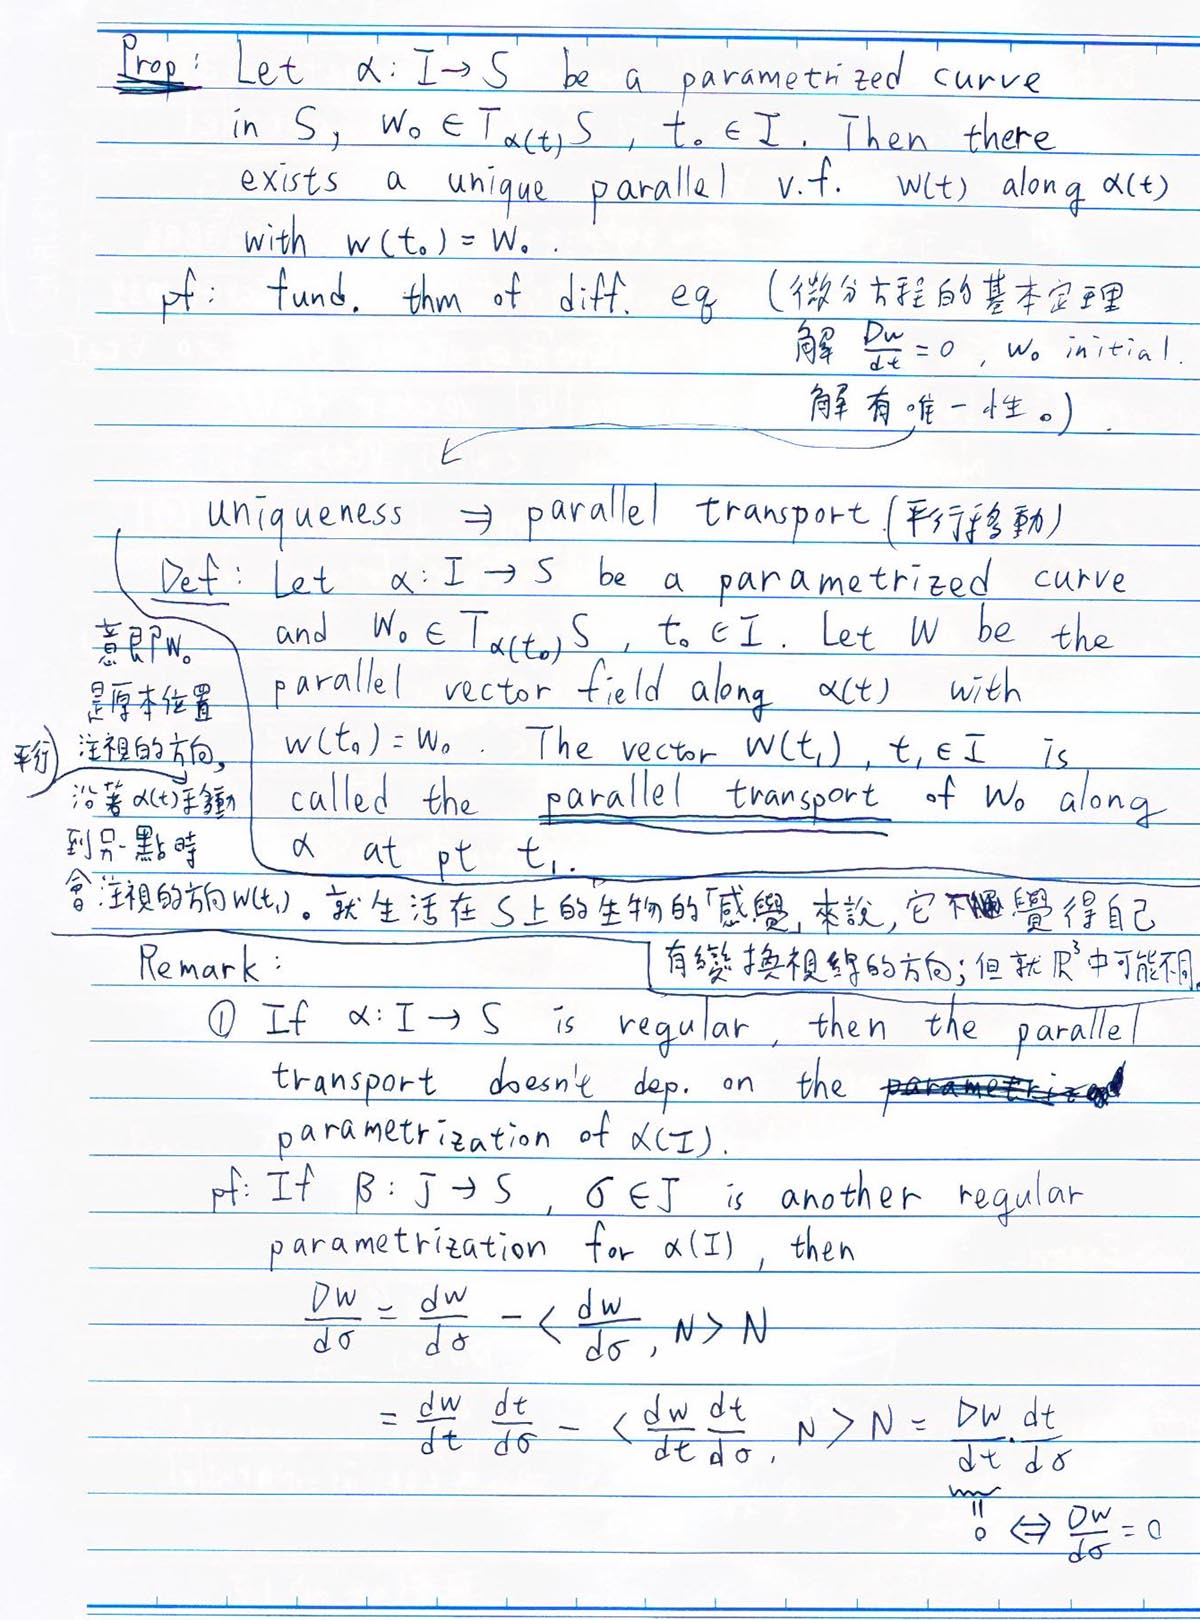 Prop: Let α: I→S be a parametrized curve
in S, w₀ ∈ T_α(t) S, t₀ ∈ I. Then there
exists a unique parallel v.f. w(t) along α(t)
with w(t₀) = w₀.
pf: fund. thm of diff. eq (微分方程的基本定理
解 Dw/dt = 0, w₀ initial.
解有唯一性。).
uniqueness ⇒ parallel transport (平行移動)
Def: Let α: I → S be a parametrized curve
and w₀ ∈ T_α(t₀) S, t₀ ∈ I. Let W be the
parallel vector field along α(t) with
w(t₀) = w₀. The vector w(t₁), t₁ ∈ I is
called the parallel transport of w₀ along
α at pt t₁.
意即w₀
是原本位置
注視的方向,
平行
沿著α(t)移動
到另一點時
會注視的方向w(t₁)。就生活在S上的生物的「感覺」來說,它不覺得自己
有變換視線的方向;但就ℝ³中可能不同.
Remark:
① If α: I → S is regular, then the parallel
transport doesn't dep. on the
parametrization of α(I).
pf: If β: J → S, σ ∈ J is another regular
parametrization for α(I), then
Dw/dσ = dw/dσ - <dw/dσ, N> N
= dw/dt dt/dσ - <dw/dt dt/dσ, N> N = Dw/dt · dt/dσ
=
0 ⇔ Dw/dσ = 0